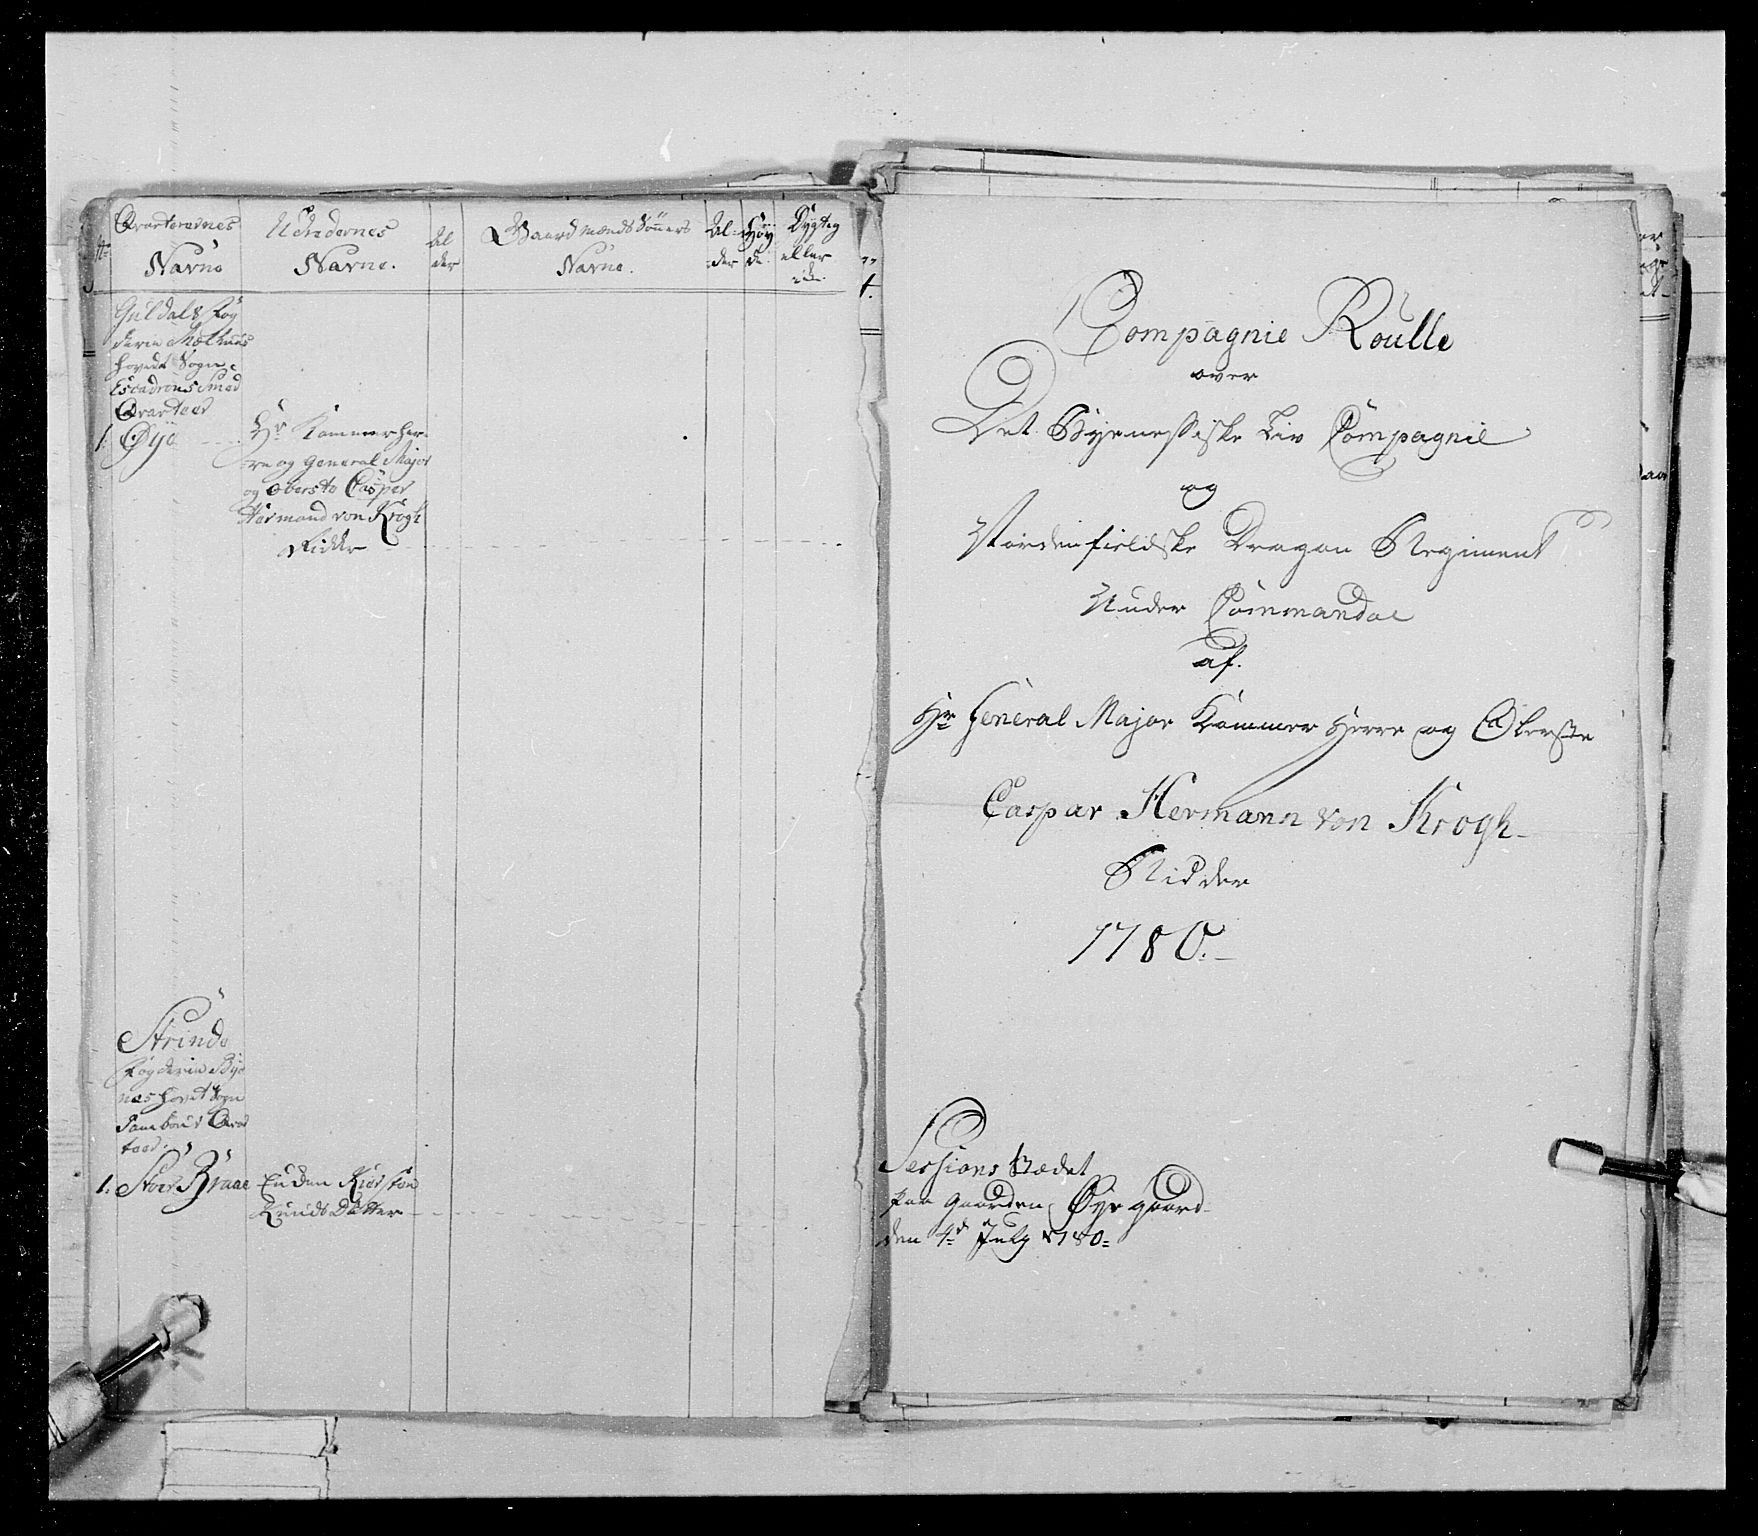 No
Qvarterernes
Navne
Uchdernes
Navne.
Al
der
Gaardmænds Sønners
Navne.
Al
der
Høy
de
Dygteg
eller
ei
Guldals Fog
derie Mælhuus
hovedt Sogn.
Escadrons Smed
Qvarteer
1. Øye
Hr. Kammerher-
re og General Major
og Oberste Casper
Hermand von Krogh
Ridder
Strinde
Fogderie Byе
næs hovet Sogn
Tambour Qvar
teer.
1. Stoer Braae
Enken Kiersten
Knuds Datter
Compagnie Roulle
over
Det Byenessiske Liv Compagnie
og
Nordenfieldske Dragon Regiment
Under Commandoe
af.
Hr General Major Kammer Herre og Oberste
Caspar Hermann von Krogh
Ridder
1780.
Sessions Rædet
paa Gaarden Øye gaard
den 4de July 1780=